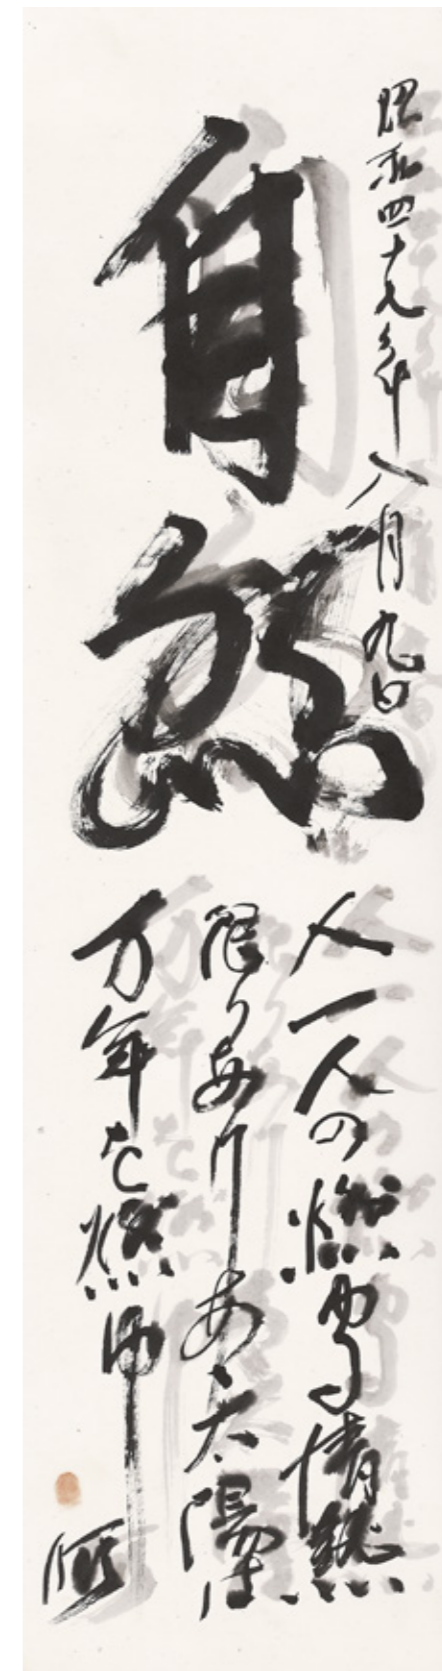 昭和四十九年八月九日
自然
人一人の燃ゆる情熱
限りありあゝ太陽は
万年を燃ゆ